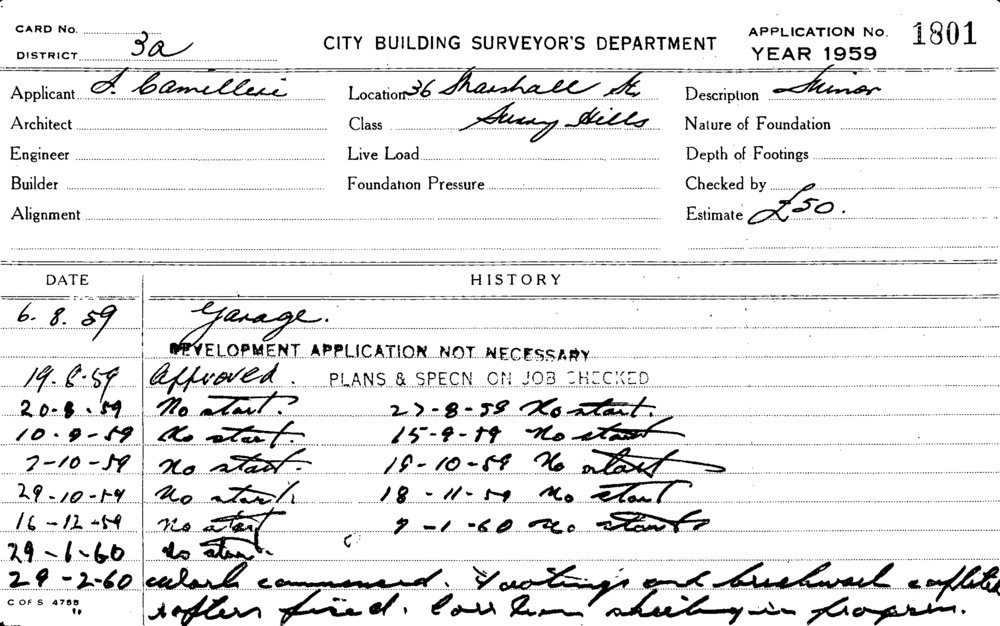 CARD No.
DISTRICT 3a
CITY BUILDING SURVEYOR'S DEPARTMENT
APPLICATION No. 1801
YEAR 1959
Applicant J. Camilleri Location 36 Marshall St. Description Minor
Architect Class Surry Hills Nature of Foundation
Engineer Live Load Depth of Footings
Builder Foundation Pressure Checked by
Alignment Estimate £50.
DATE HISTORY
6. 8. 59 Garage.
DEVELOPMENT APPLICATION NOT NECESSARY
19. 8. 59 Approved. PLANS & SPECN ON JOB CHECKED
20-8-59 No start. 27-8-59 No start.
10-9-59 No start. 15-9-59 No start
2-10-59 No start. 19-10-59 No start
29-10-59 No start. 18-11-59 No start
16-12-59 No start 7-1-60 No start
29-1-60 No start.
29-2-60 work commenced. Footings and brickwork
rafters fixed. sheeting in progress.
C OF S 4755